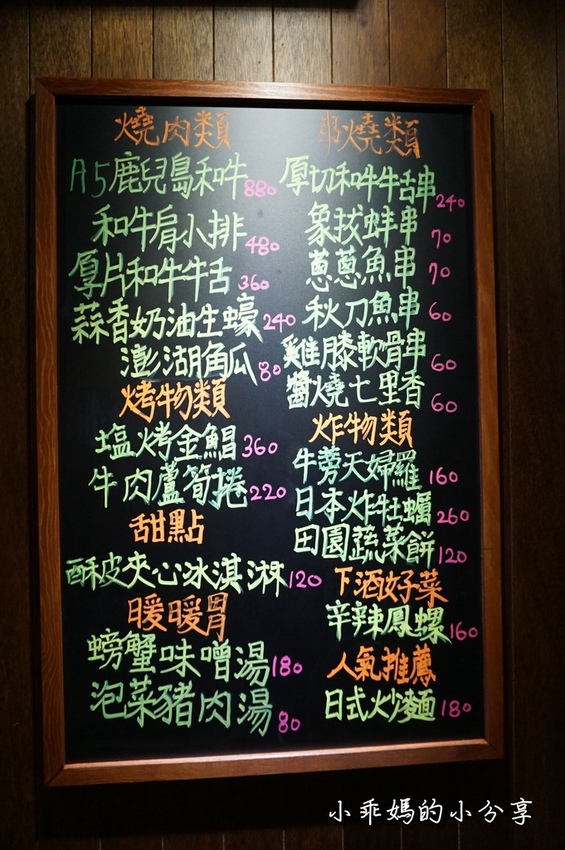 燒肉類
A5鹿兒島和牛 880
和牛肩小排 480
厚片和牛牛舌 360
蒜香奶油生蠔 240
澎湖角瓜 80
烤物類
塩烤金鯧 360
牛肉蘆筍捲 220
甜點
酥皮夾心冰淇淋 120
暖暖胃
螃蟹味噌湯 180
泡菜豬肉湯 80
串燒類
厚切和牛牛舌串 240
象拔蚌串 70
蔥蔥魚串 70
秋刀魚串 60
雞膝軟骨串 60
醬燒七里香 60
炸物類
牛蒡天婦羅 160
日本炸牡蠣 260
田園蔬菜餅 120
下酒好菜
辛辣鳳螺 160
人氣推薦
日式炒麵 180
小乖媽的小分享